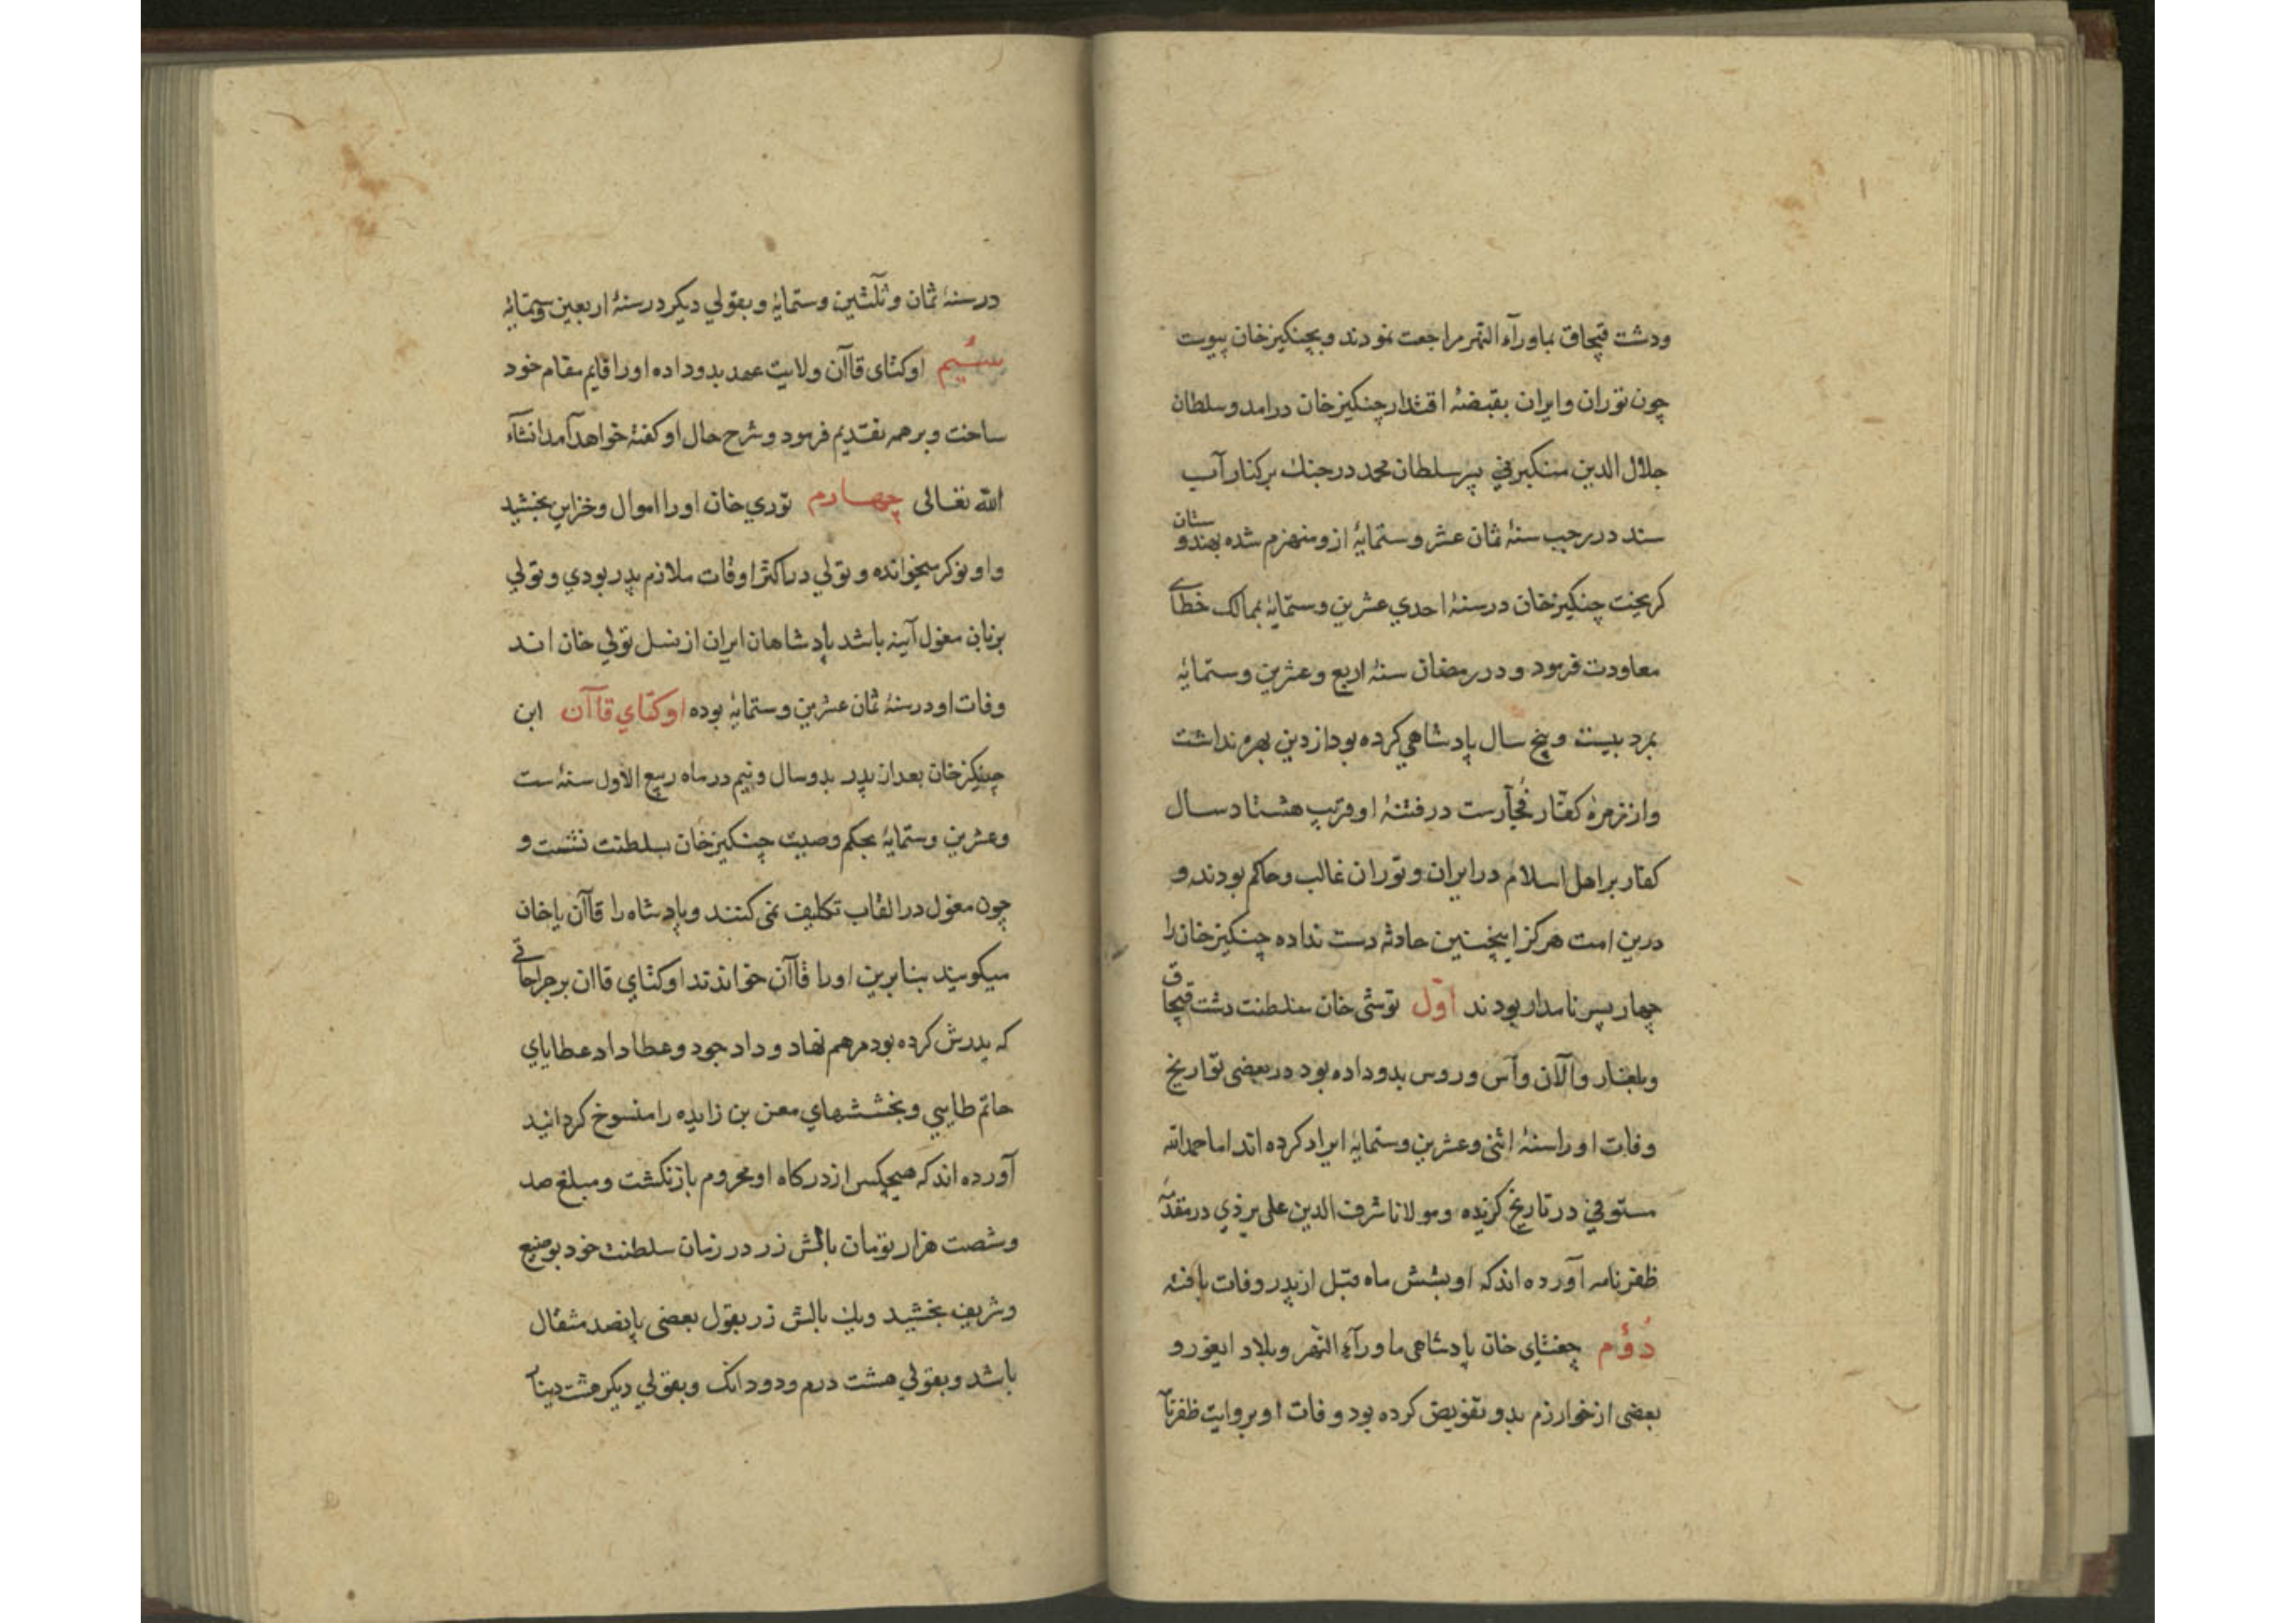 ودشت قپچاق بماورآء النهر مراجعت نمودند و بچنكيزخان پيوست
چون توران وايران بقبضهٔ اقتدار چنكيزخان درامد وسلطان
جلال الدين منكبرني پسر سلطان محمد در جنك بر كنار آب
سند در رجب سنهٔ ثمان عشر وستمايهٔ ازو منهزم شده بهندوستان
كريخت چنكيزخان در سنهٔ احدي عشرين وستمايهٔ بممالك خطاي
معاودت فرمود و در رمضان سنهٔ اربع وعشرين وستمايهٔ
بمرد بيست و پنج سال پادشاهي كرده بود از دين بهره نداشت
واز زمرهٔ كفّار فُجّارست در فتنهٔ او قريب هشتاد سال
كفّار بر اهل اسلام در ايران و توران غالب وحاكم بودند و
درين امت هركز اينچنين حادثه دست نداده چنكيزخان را
چهار پسر نامدار بودند اوّل توشي خان سلطنت دشت قپچاق
وبلغار وآلان وآس وروس بدو داده بود در بعضى تواريخ
وفات او را سنهٔ اثنى وعشرين وستمايهٔ ايراد كرده اند اما حمد الله
مستوفي در تاريخ كزيده ومولانا شرف الدين على يزدي در مقدّمهٔ
ظفرنامه آورده اند كه او بشش ماه قبل از پدر وفات يافته
دُوُم چغتاى خان پادشاهى ماورآء النهر وبلاد ايغور و
بعضى از خوارزم بدو تفويض كرده بود وفات او بروايت ظفرنا
در سنهٔ ثمان وثلثين وستمايهٔ و بقولي ديكر در سنهٔ اربعين وستمايهٔ
سيُم اوكتاى قاآن ولايت عهد بدو داده او را قايم مقام خود
ساخت وبر همه تقديم فرمود و شرح حال او كفته خواهد آمد انشآء
الله تعالى چهارم تولي خان او را اموال وخزاين بخشيد
واو نوكر ميخوانده و تولي در اكثر اوقات ملازم پدر بودي و تولي
بزبان مغول آينه باشد پادشاهان ايران از نسل تولي خان اند
وفات او در سنهٔ ثمان عشرين وستمايهٔ بوده اوكتاي قاآن ابن
چينكزخان بعد از پدر بدو سال ونيم در ماه ربيع الاول سنهٔ ست
وعشرين وستمايهٔ بحكم وصيت چنكيزخان بسلطنت نشست و
چون مغول در القاب تكليف نمى كنند وپادشاه را قاآن يا خان
ميكويند بنابرين او را قاآن خواندند اوكتاي قاان بر جراحاتى
كه پدرش كرده بود مرهم نهاد و داد جود وعطا داد عطاياي
حاتم طايي وبخششهاي معن بن زايده را منسوخ كردانيد
آورده اند كه هيچكس از دركاه او محروم باز نكشت ومبلغ صد
وشصت هزار تومان بالش زر در زمان سلطنت خود بوضيع
وشريف بخشيد ويك بالش زر بقول بعضى پانصد مثقال
باشد وبقولي هشت درم ودو دانك وبقولي ديكر هشت دينا